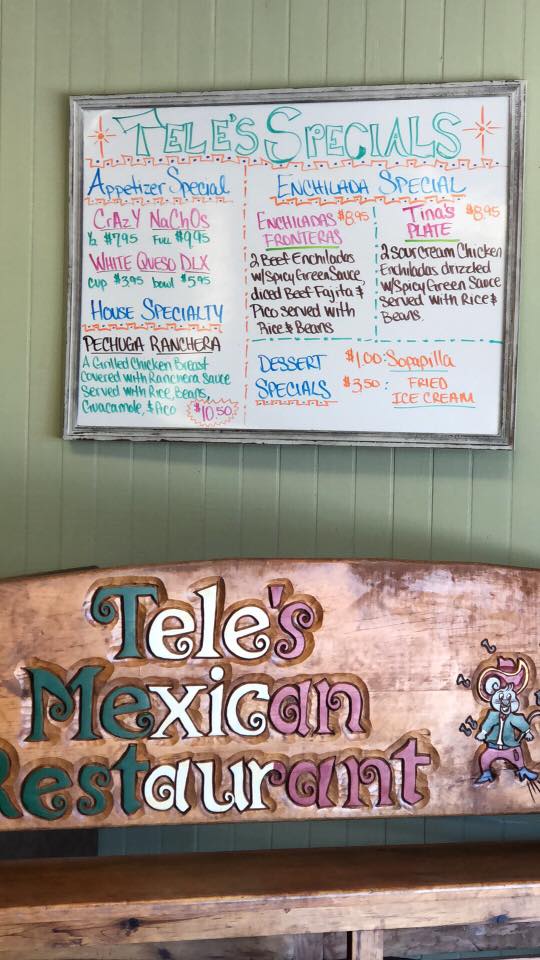 TELE'S SPECIALS
Appetizer Special
CrAzY NaChOs
½ $7.95 Full $9.95
WHITE QUESO DLX
cup $3.95 bowl $5.95
HOUSE SPECIALTY
PECHUGA RANCHERA
A Grilled Chicken Breast
covered with Ranchera Sauce
Served with Rice, Beans,
Guacamole, & Pico $10.50
ENCHILADA SPECIAL
ENCHILADAS $8.95
FRONTERAS
2 Beef Enchiladas
w/Spicy Green Sauce
diced Beef Fajita &
Pico served with
Rice & Beans
Tina's $8.95
PLATE
2 sour cream Chicken
Enchiladas drizzled
w/Spicy Green Sauce
Served with Rice &
Beans.
DESSERT
SPECIALS
$1.00: Sopapilla
$3.50: FRIED
ICE CREAM
Tele's
Mexican
Restaurant